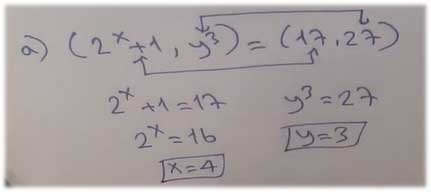 a) (2ˣ+1, y³) = (17, 27)
2ˣ+1=17 y³=27
2ˣ=16 y=3
x=4